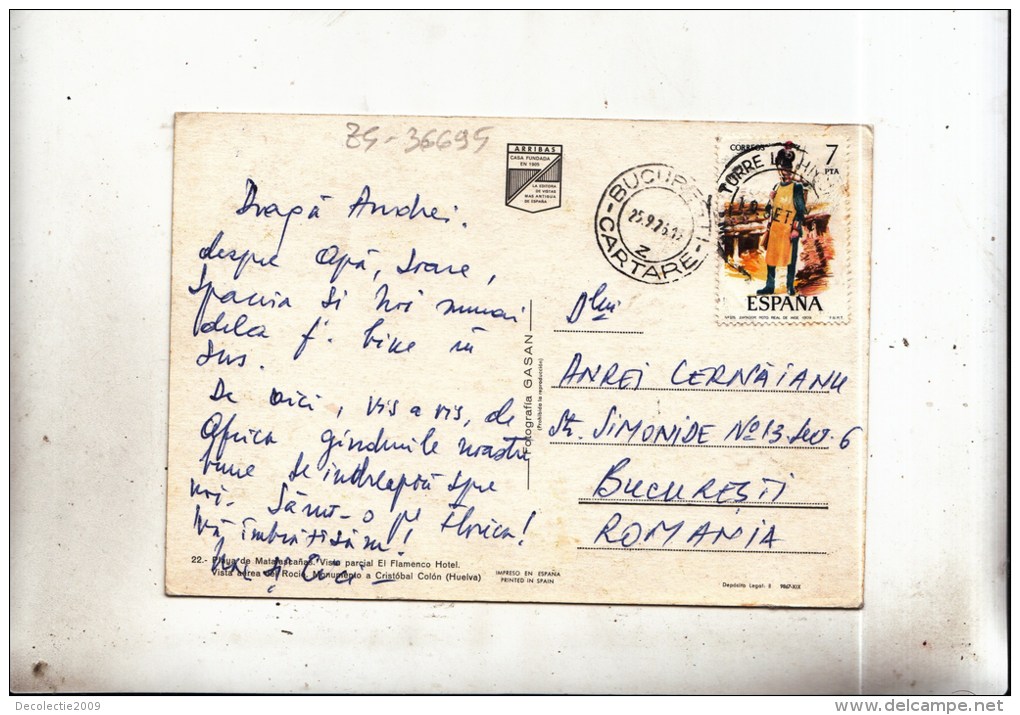 ZG-36695
ARRIBAS
CASA FUNDADA
EN 1905
LA EDITORA
DE VISTAS
MAS ANTIGUA
DE ESPAÑA
BUCUREȘTI
25.9.75
CARTARE
CORREOS 7
PTA
ESPAÑA
Dragă Andrei,
despre Apă, soare,
Spania și noi numai
dela f. bine în
sus.
De aici, vis a vis, de
Africa gîndurile noastre
bune se îndreaptă spre
voi. Săru-o pe Florica!
Vă îmbrățișăm!
22.- Playa de Matalascañas. Vista parcial El Flamenco Hotel.
Vista aérea del Rocío. Monumento a Cristóbal Colón (Huelva)
Fotografía GASAN
(Prohibida la reproducción)
IMPRESO EN ESPAÑA
PRINTED IN SPAIN
Dlui
ANREI CERNĂIANU
Str. SIMONIDE No 13. Sec. 6
BUCUREȘTI
ROMANIA
Depósito Legal: B 9867-XIX
Decolectie2009
www.delcampe.net